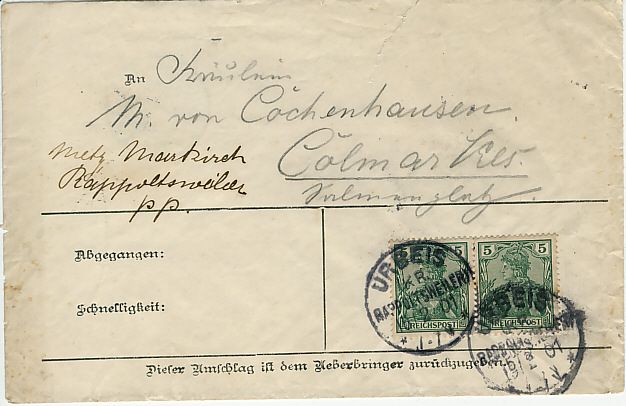 An Fräulein
M. von Cochenhausen
Colmar
Metz Markirch
Rappoltsweiler
pp.
Abgegangen:
Schnelligkeit:
5 5
REICHSPOST REICHSPOST
URBEIS
RAPPOLTSWEILER
01
* 7-8V *
URBEIS
01
Dieser Umschlag ist dem Ueberbringer zurückzugeben.